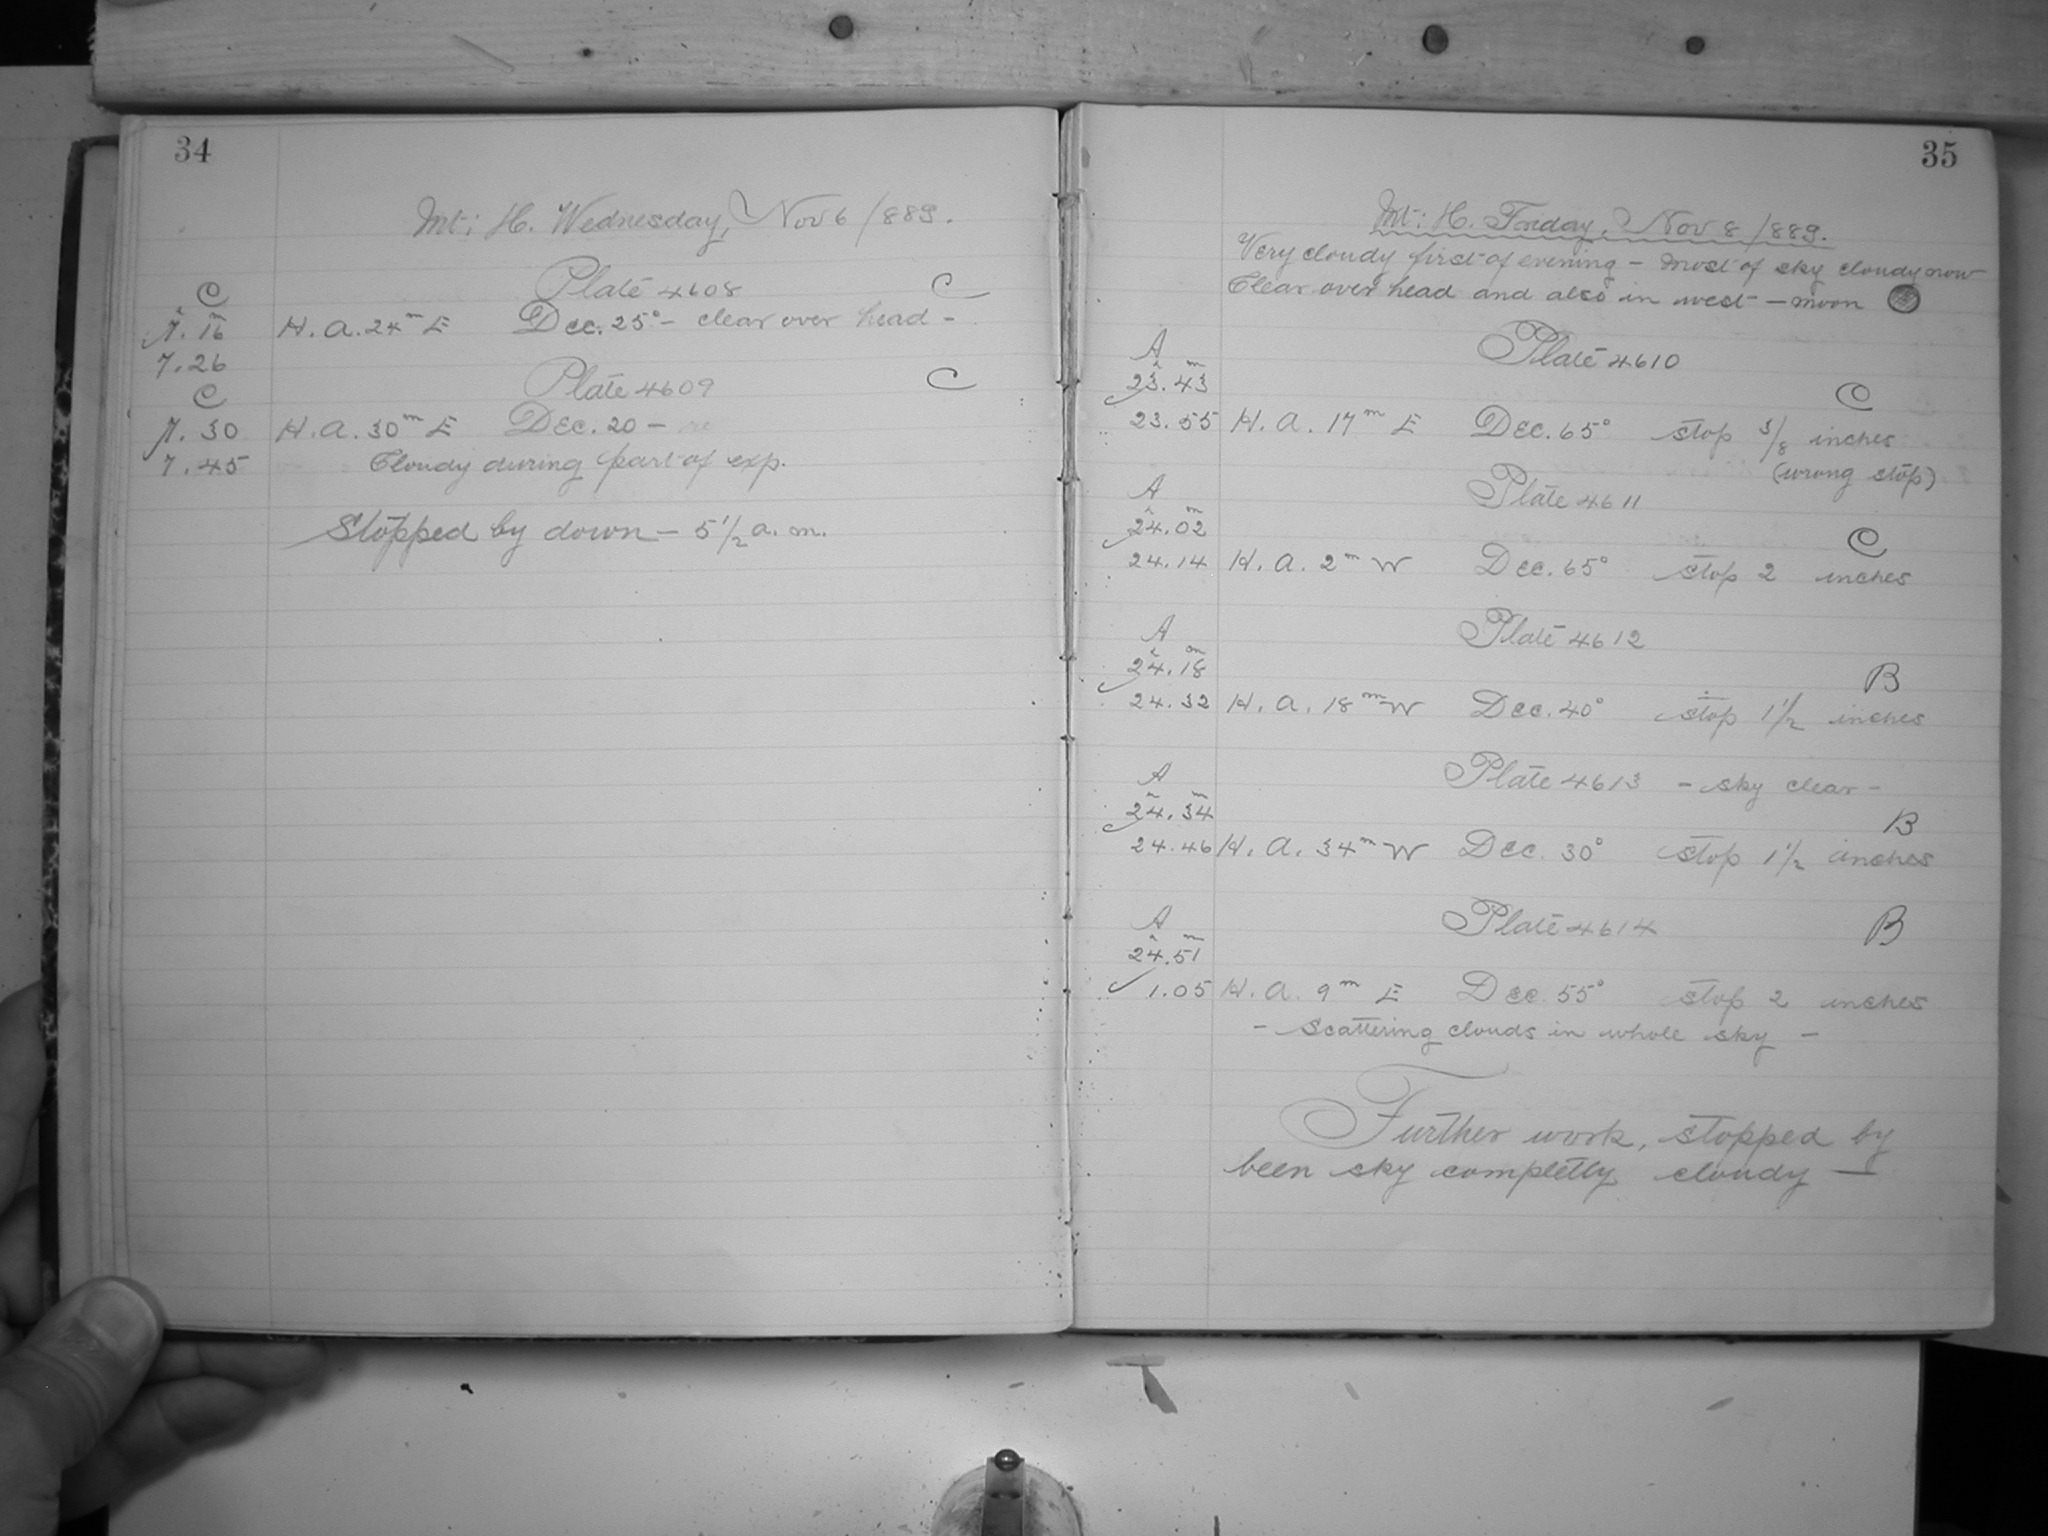 34
Mt; H. Wednesday, Nov 6 1889.
C Plate 4608 C
h m
7.16 H. A. 24m E Dec. 25° - clear over head -
7.26
C Plate 4609 C
7.30 H. A. 30m E Dec. 20 -
7.45 Cloudy during part of exp.
Stopped by down - 5 1/2 a. m.
35
Mt; H. Friday, Nov 8 1889.
Very cloudy first of evening - most of sky cloudy now
Clear over head and also in west - moon
A Plate 4610
h m
23.43 C
23.55 H. A. 17m E Dec. 65° stop 3/8 inches
(wrong stop)
A Plate 4611
h m
24.02 C
24.14 H. A. 2m W Dec. 65° stop 2 inches
A Plate 4612
h m
24.18 B
24.32 H. A. 18m W Dec. 40° stop 1 1/2 inches
A Plate 4613 - sky clear -
h m
24.34 B
24.46 H. A. 34m W Dec. 30° stop 1 1/2 inches
A Plate 4614 B
h m
24.51
1.05 H. A. 9m E Dec 55° stop 2 inches
- Scattering clouds in whole sky -
Further work, stopped by
been sky completly cloudy —